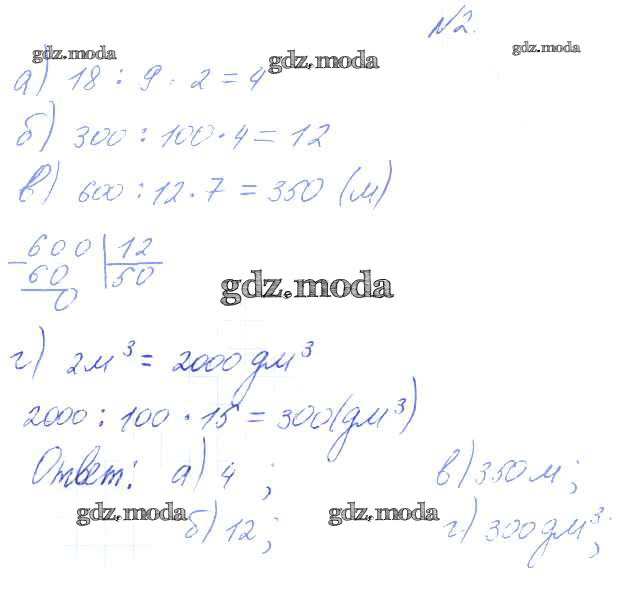 №2.
gdz.moda gdz.moda gdz.moda
а) 18 : 9 · 2 = 4
б) 300 : 100 · 4 = 12
в) 600 : 12 · 7 = 350 (м)
600 | 12
60 | 50
0
gdz.moda
г) 2м³ = 2000 дм³
2000 : 100 · 15 = 300 (дм³)
Ответ: а) 4 ; в) 350 м ;
gdz.moda б) 12 ; gdz.moda г) 300 дм³ ;